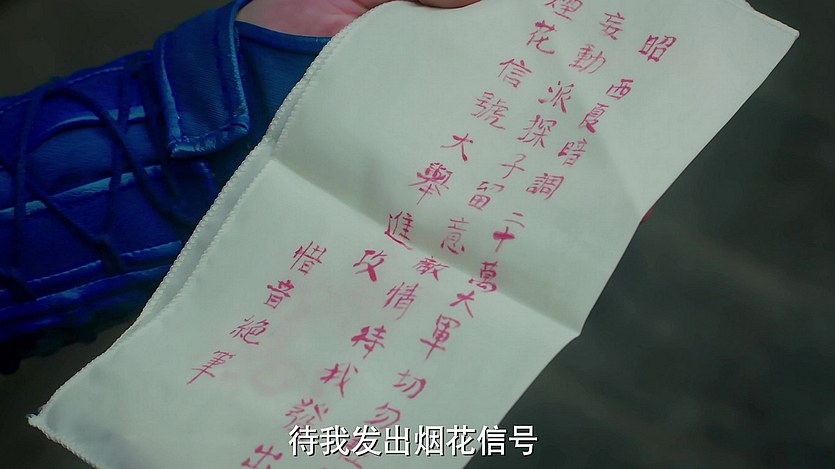 昭
西夏暗調二十萬大軍切勿
妄動派探子留意敵情待我發出
煙花信號大舉進攻
惜音絕筆
待我发出烟花信号